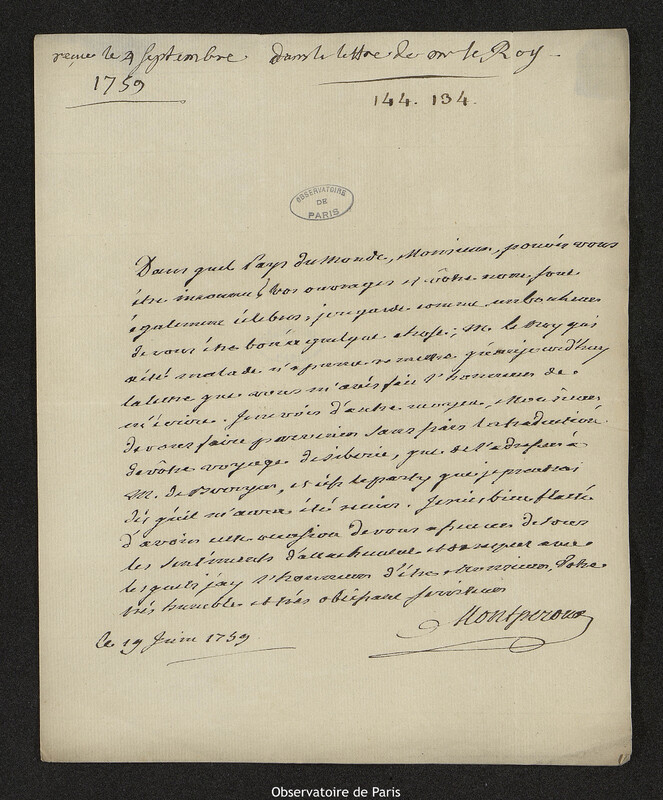 reçue le 4 Septembre dans la lettre de mr le Roy
1759
144. 134.
OBSERVATOIRE
DE
PARIS
Dans quel Pays du Monde, Monsieur, pouvés vous
être inconnu? vos ouvrages et vôtre nom, sont
également célebres, je regarde comme un bonheur
de vous être bon à quelque chose; Mr. le Roy qui
a été malade n'a pu me remettre qu'aujourd'huy
la lettre que vous m'avés fait l'honneur de
m'écrire. Je ne vois d'autre moyen, Monsieur
de vous faire parvenir sans frais la traduction
de vôtre voyage de siberie, que de l'adresser à
M. de , et c'est le party que je prendrai
dès qu'il m'aura été remis. Je suis bien flatté
d'avoir cette occasion de vous assurer de tous
les sentiments d'attachement et de respect avec
lesquels j'ay l'honneur d'être Monsieur, Votre
très humble et très obéissant serviteur
Montperoux
le 19 Juin 1759
Observatoire de Paris